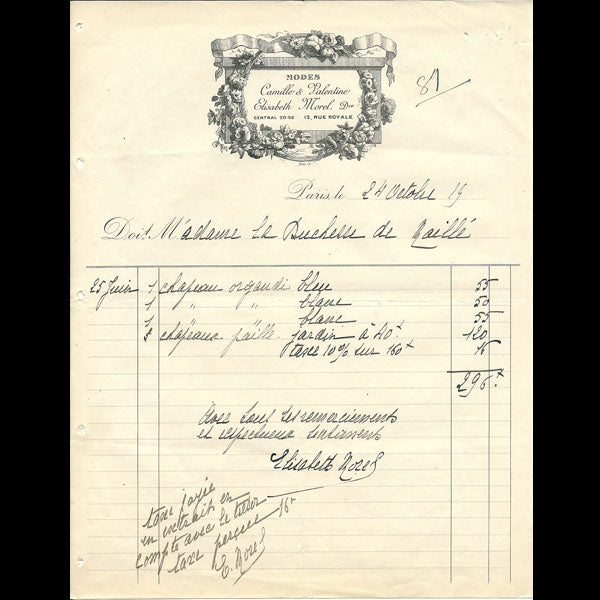 MODES
Camille & Valentine
Elisabeth Morel. Dce
CENTRAL 20-93 12, RUE ROYALE
81
Paris, le 24 Octobre 19
Doit Madame la Duchesse de Maillé
25 Juin 1 chapeau organdi bleu 55
1 " " blanc 50
1 blanc 55
3 chapeaux paille jardin à 40f 120
taxe 10% sur 160f 16
296f
Avec tous ses remerciements
et respectueux sentiments
Elisabeth Morel
taxe payée
en extrait en
compte avec le trésor
taxe perçue 16f
E. Morel